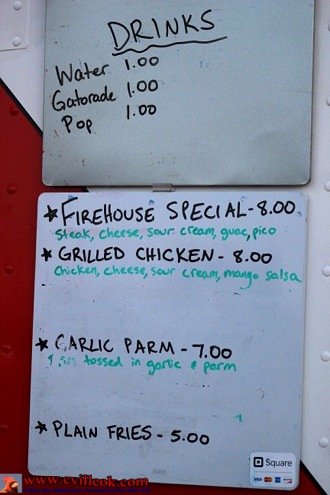 DRINKS
Water 1.00
Gatorade 1.00
Pop 1.00
★ FIREHOUSE SPECIAL - 8.00
Steak, cheese, sour cream, guac, pico
★ GRILLED CHICKEN - 8.00
Chicken, cheese, sour cream, mango salsa
★ GARLIC PARM - 7.00
tossed in garlic & parm
★ PLAIN FRIES - 5.00
Square
VISA
www.cvillecok.com